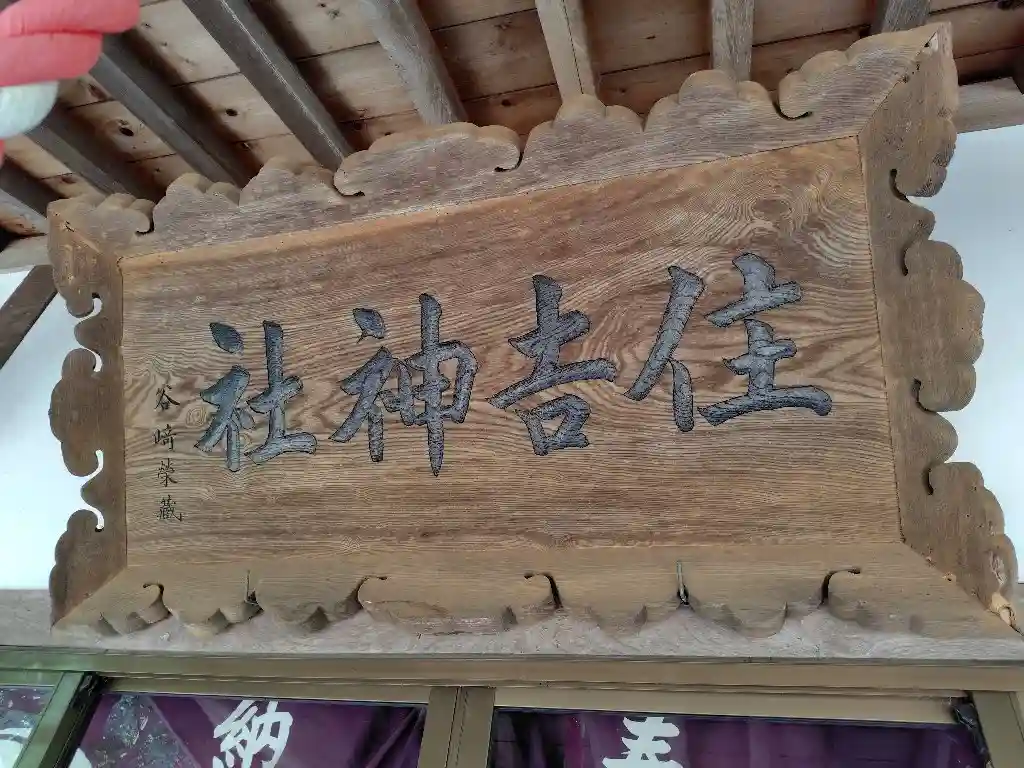 住吉神社
谷﨑榮藏
奉納